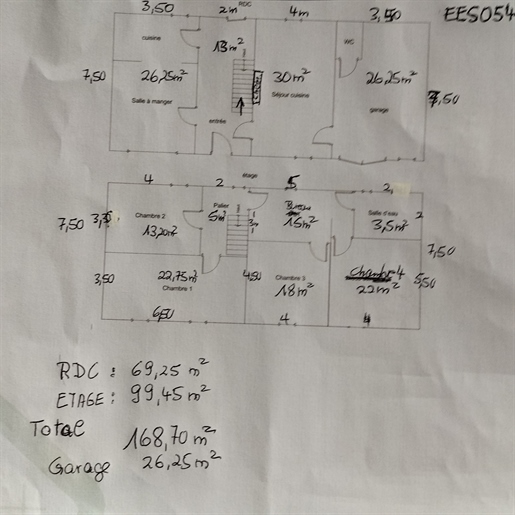 RDC
3,50 2m 4m 3,50 EES054
cuisine 13m² WC
7,50 26,25m² 30m² 26,25m² 7,50
Salle à manger Séjour cuisine garage
entrée
étage
4 2 5 2,
Palier
Chambre 2 5m² 3m 15m² Salle d'eau 2
7,50 13,20m² 3,5m²
7,50
3,50 22,75m² 4,50 Chambre 3 Chambre 4 5,50
Chambre 1 18m² 22m²
6,50 4 4
RDC : 69,25 m²
ETAGE : 99,45 m²
Total 168,70 m²
Garage 26,25 m²